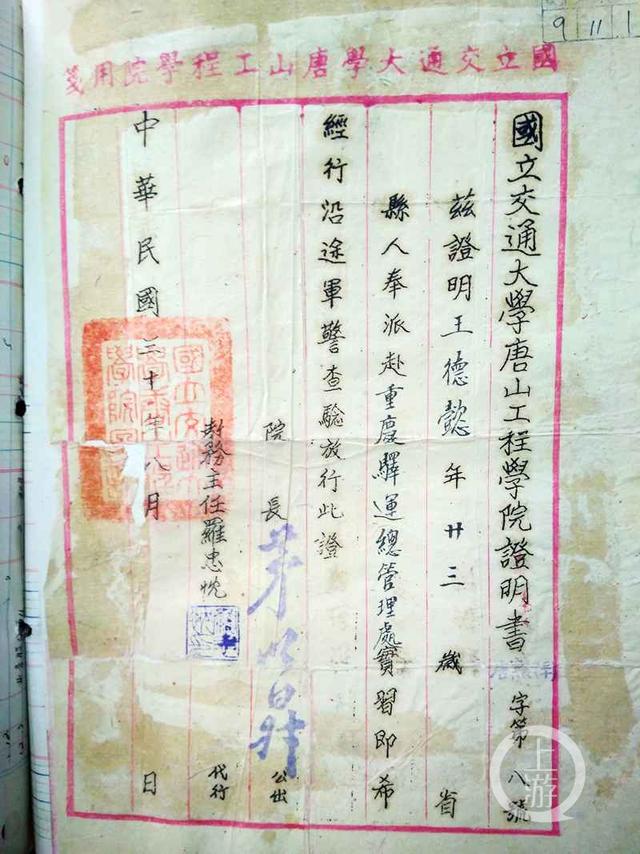 9 11 1
國立交通大學唐山工程學院用箋
國立交通大學唐山工程學院證明書 字第八號
茲證明王德懿年廿三歲 省
縣人奉派赴重慶驛運總管理處實習即希
經行沿途軍警查驗放行此證
院長茅以昇 公出
教務主任羅忠忱 代行
中華民國三十年八月 日
上游